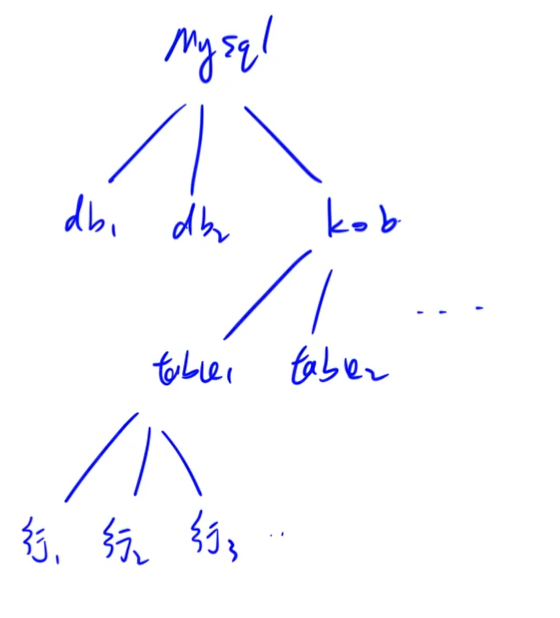 Mysql
db1 db2 kob
table1 table2 ...
行1 行2 行3 ..